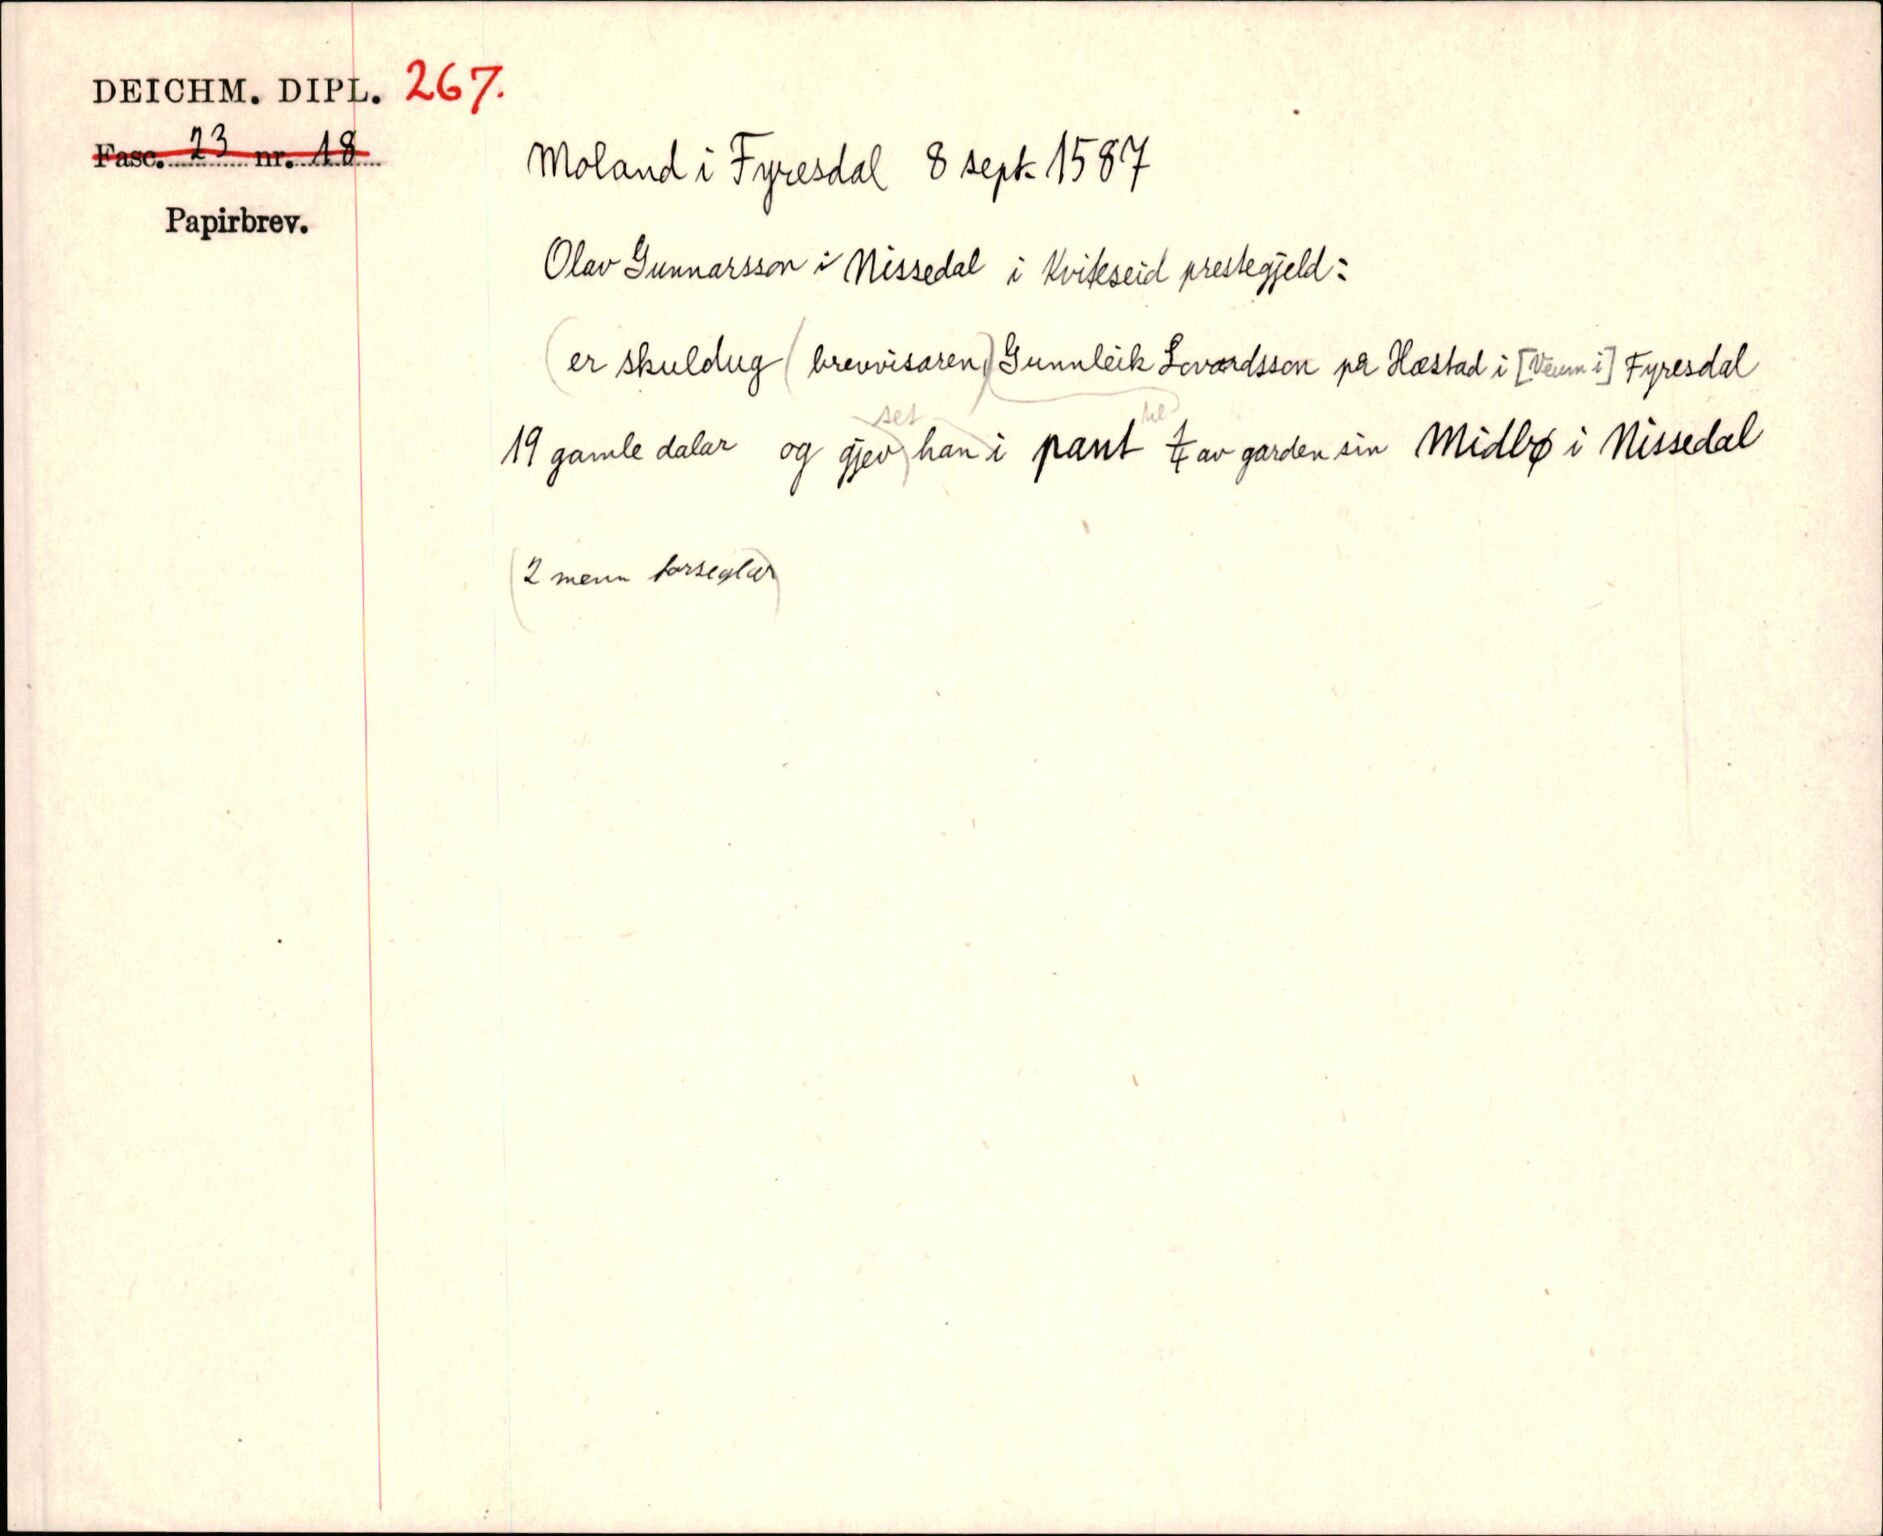 DEICHM. DIPL. 267.
Fasc. 23 nr. 18
Papirbrev.
Moland i Fyresdal 8 sept. 1587
Olav Gunnarsson i Nissedal i Kviteseid prestegjeld:
(er skuldug (brevvisaren) Gunnleik Lovardsson på Hæstad i [Veum i] Fyresdal
set til
19 gamle dalar og gjev) han i pant av garden sin Midbø i Nissedal
(2 menn forseglar)